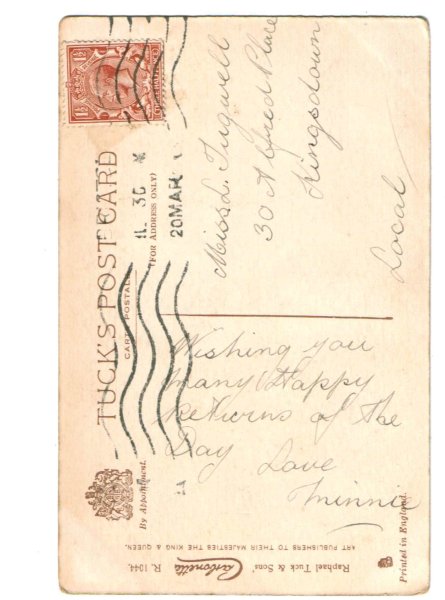 TUCK'S POST CARD
CARTE POSTALE
(FOR ADDRESS ONLY)
By Appointment.
1½ 1½
11. 30
20 MAR
Miss L. Tugwell
30 Alfred Place
Kingsdown
Local
Wishing you
many Happy
Returns of the
Day Love
Minnie
Raphael Tuck & Sons'
Carbonette R. 1044.
ART PUBLISHERS TO THEIR MAJESTIES THE KING & QUEEN.
Printed in England.